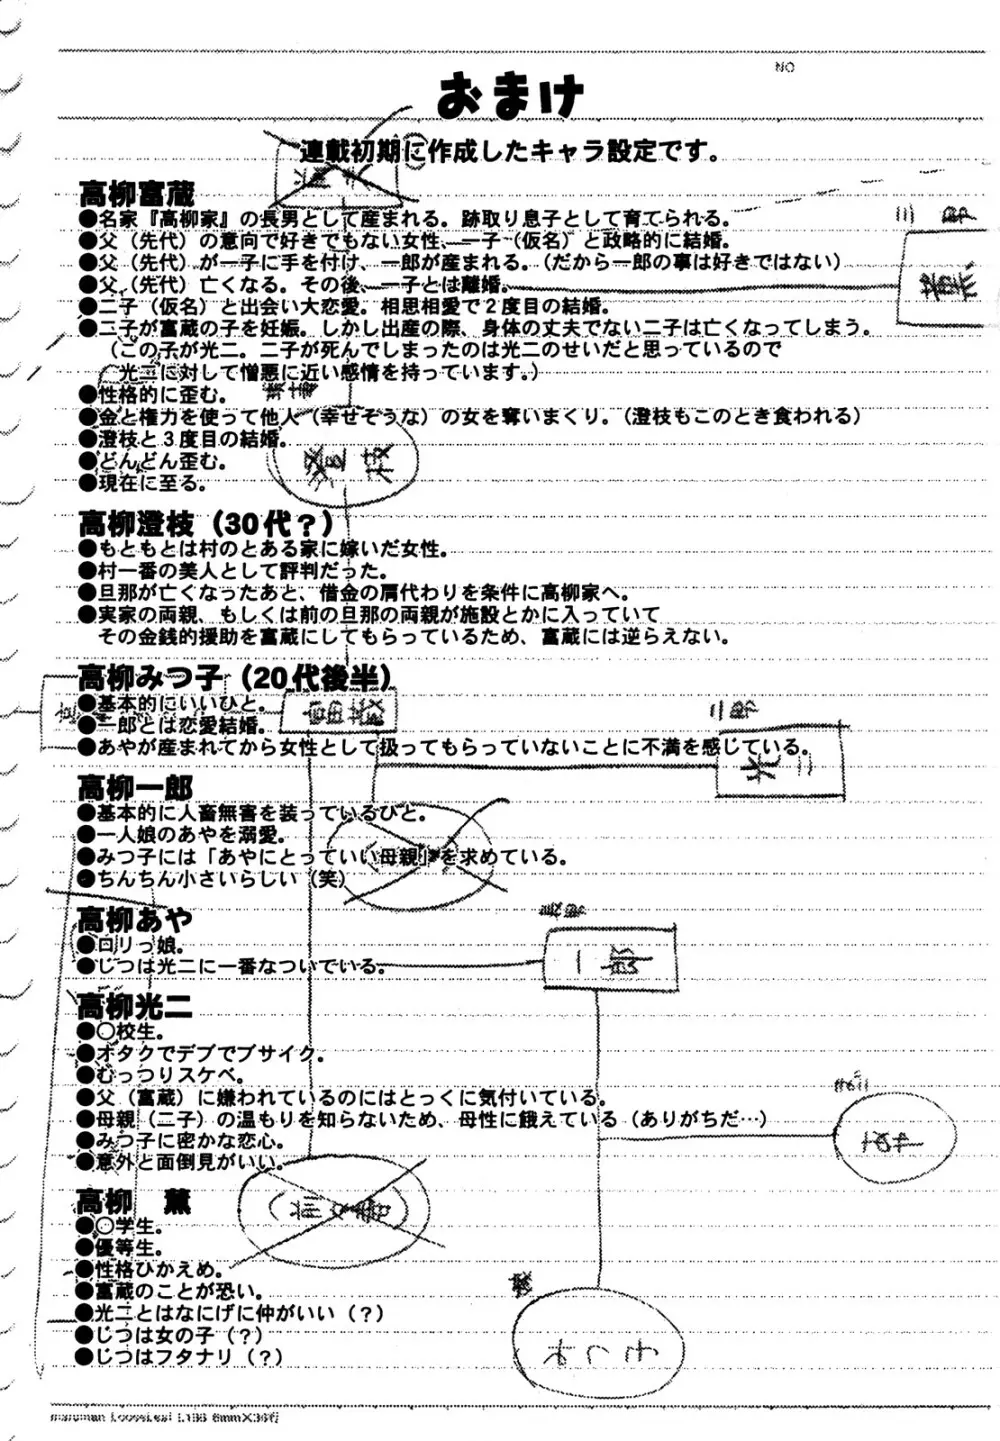 NO
おまけ
連載初期に作成したキャラ設定です。
高柳富蔵
●名家『高柳家』の長男として産まれる。跡取り息子として育てられる。
●父（先代）の意向で好きでもない女性、一子（仮名）と政略的に結婚。
●父（先代）が一子に手を付け、一郎が産まれる。（だから一郎の事は好きではない）
●父（先代）亡くなる。その後、一子とは離婚。
●二子（仮名）と出会い大恋愛。相思相愛で２度目の結婚。
●二子が富蔵の子を妊娠。しかし出産の際、身体の丈夫でない二子は亡くなってしまう。
（この子が光二。二子が死んでしまったのは光二のせいだと思っているので
光二に対して憎悪に近い感情を持っています。）
●性格的に歪む。
●金と権力を使って他人（幸せそうな）の女を奪いまくり。（澄枝もこのとき食われる）
●澄枝と３度目の結婚。
●どんどん歪む。
●現在に至る。
三郎
薫
澄枝
高柳澄枝（30代？）
●もともとは村のとある家に嫁いだ女性。
●村一番の美人として評判だった。
●旦那が亡くなったあと、借金の肩代わりを条件に高柳家へ。
●実家の両親、もしくは前の旦那の両親が施設とかに入っていて
その金銭的援助を富蔵にしてもらっているため、富蔵には逆らえない。
高柳みつ子（20代後半）
●基本的にいいひと。
●一郎とは恋愛結婚。
●あやが産まれてから女性として扱ってもらっていないことに不満を感じている。
富蔵
二郎
光二
高柳一郎
●基本的に人畜無害を装っているひと。
●一人娘のあやを溺愛。
●みつ子には「あやにとっていい母親」を求めている。
●ちんちん小さいらしい（笑）
高柳あや
●ロリっ娘。
●じつは光二に一番なついている。
長男
一郎
高柳光二
●○校生。
●オタクでデブでブサイク。
●むっつりスケベ。
●父（富蔵）に嫌われているのにはとっくに気付いている。
●母親（二子）の温もりを知らないため、母性に餓えている（ありがちだ…）
●みつ子に密かな恋心。
●意外と面倒見がいい。
高柳　薫
●○学生。
●優等生。
●性格ひかえめ。
●富蔵のことが恐い。
●光二とはなにげに仲がいい（？）
●じつは女の子（？）
●じつはフタナリ（？）
みつ子
maruman LooseLeaf L1 6mm×36行